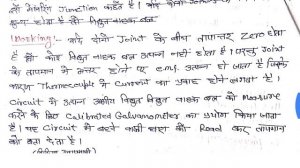 को मेजरिंग Junction कहते है।
शून्य होता है तो विद्युत वाहक बल
Working:- यदि दोनों Joint के बीच तापान्तर Zero होता
है तो कोई विद्युत वाहक बल उत्पन्न नहीं होता है। परन्तु Joint
के तापमान में अन्तर होने पर e.m.f. उत्पन्न हो जाता है जिसके
कारण Thermocouple में Current का प्रवाह होने लगता है।
Circuit में उत्पन्न विद्युत वाहक बल को Measure
करने के लिए Calibrated Galvanometer का प्रयोग किया जाता
है। यह Circuit में बहने वाली धारा को Read कर तापमान
को बता देता है।